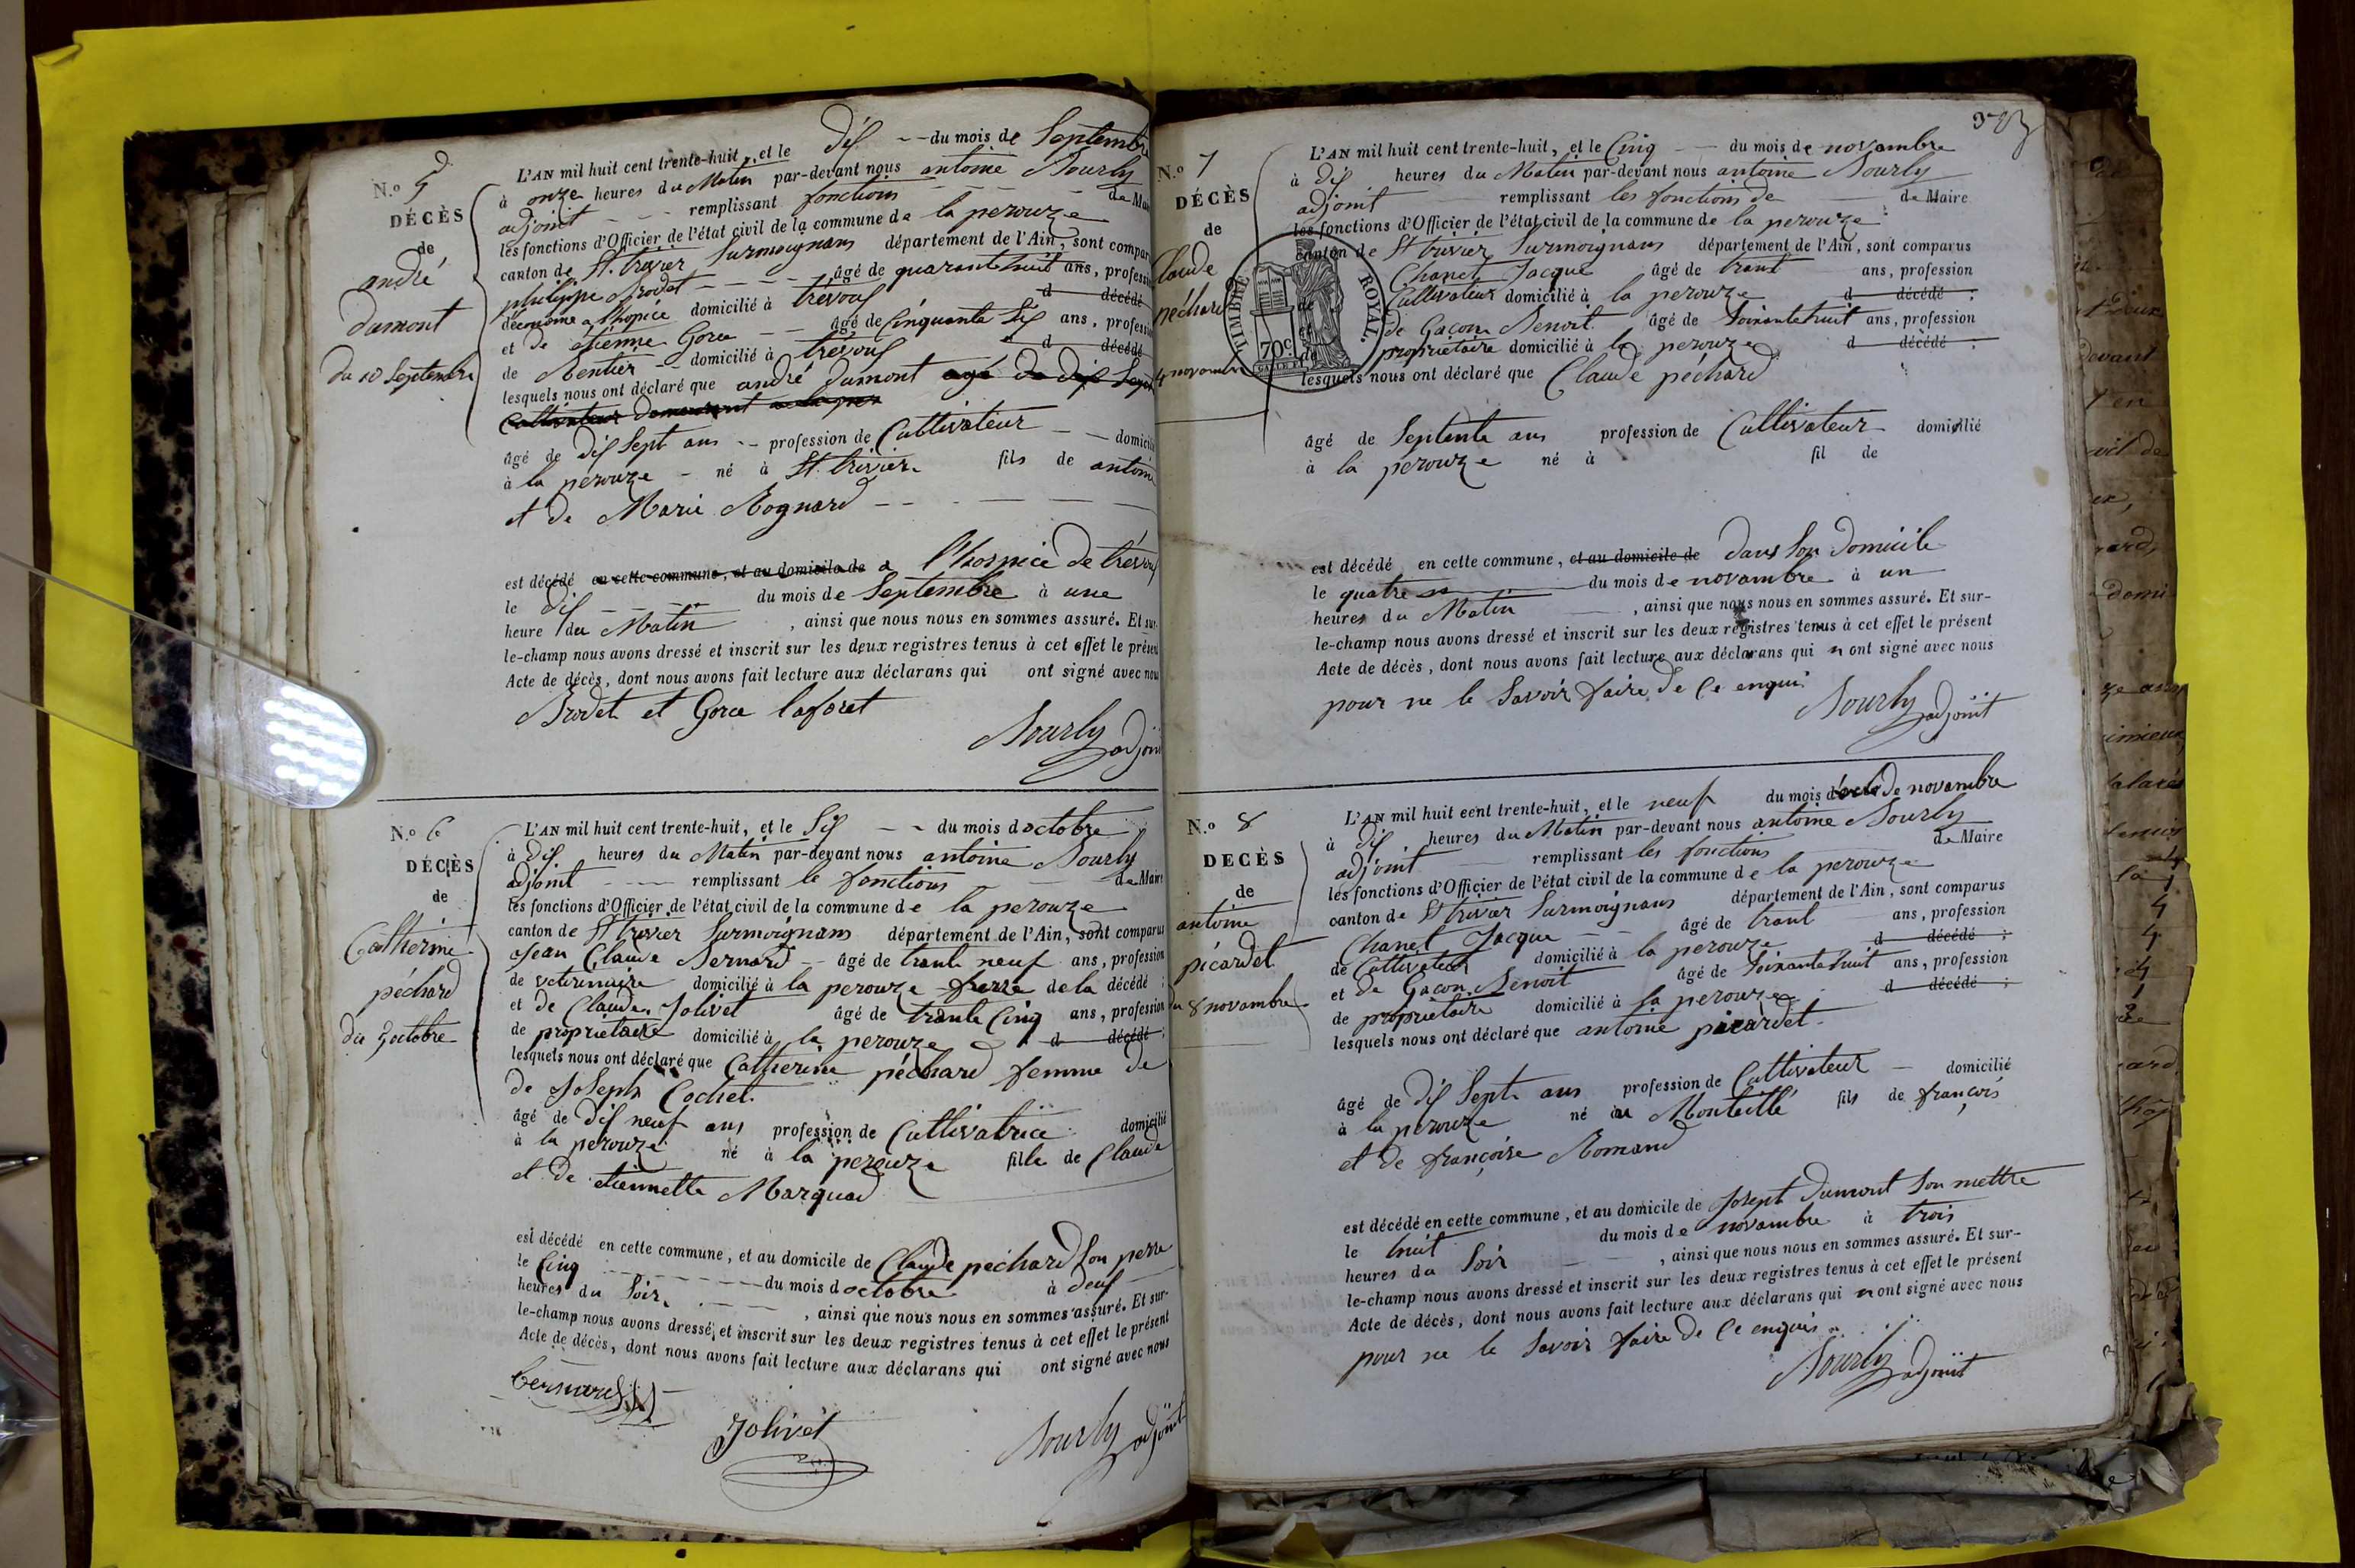 N.o 5
DÉCÈS
de
andré
dumont
du 10 Septembre
L'AN mil huit cent trente-huit, et le dix du mois de Septembre
à onze heures du Matin par-devant nous antoine Nourly
adjoint remplissant fonctions de Mai
les fonctions d'Officier de l'état civil de la commune de la perouze
canton de St. trivier Surmoignans département de l'Ain, sont compar
philippe Brodet âgé de quarante huit ans, profess
d'économe a l'hopice domicilié à trévoux d décédé
et de etienne Gorce âgé de Cinquante Six ans, profess
de Rentier domicilié à trévoux d décédé
lesquels nous ont déclaré que andré dumont agé de dix Sept
Cultivateur demeurant a la per
âgé de dix Sept ans profession de Cultivateur domicil
à la perouze né à St. trivier fils de antoine
et de Marie Rognard
est décédé en cette commune, et au domicile de a l'hospice de trévoux
le dix du mois de Septembre à une
heure du Matin, ainsi que nous nous en sommes assuré. Et sur-
le-champ nous avons dressé et inscrit sur les deux registres tenus à cet effet le présent
Acte de décès, dont nous avons fait lecture aux déclarans qui ont signé avec nou
Brodet et Gorce laforet
Nourly adjoint
N.o 6
DÉCÈS
de
Catherine
péchard
du 5 octobre
L'AN mil huit cent trente-huit, et le Six du mois d octobre
à dix heures du Matin par-devant nous antoine Nourly
adjoint remplissant le fonctions de Maire
les fonctions d'Officier de l'état civil de la commune de la perouze
canton de St trivier Surmoignans département de l'Ain, sont comparus
Jean Claude Bernard âgé de trante neuf ans, profession
de veterinaire domicilié à la perouze frere de la décédé ;
et de Claude Jolivet âgé de trante Cinq ans, profession
de propriétaire domicilié à la perouze d décédé ;
lesquels nous ont déclaré que Catherine péchard femme de
de Joseph Cochet
âgé de dix neuf ans profession de Cultivatrice domicilié
à la perouze né à la perouze fille de Claude
et de etiennette Marquad
est décédé en cette commune, et au domicile de Claude pechard Son perre
le Cinq du mois d octobre à deux
heures du Soir, ainsi que nous nous en sommes assuré. Et sur-
le-champ nous avons dressé et inscrit sur les deux registres tenus à cet effet le présent
Acte de décès, dont nous avons fait lecture aux déclarans qui ont signé avec nous
bernard
Jolivet
Nourly adjoint
373
N.o 7
DÉCÈS
de
Claude
péchard
4 novembre
TIMBRE ROYAL.
70c.
L'AN mil huit cent trente-huit, et le Cinq du mois de novambre
à dix heures du Matin par-devant nous antoine Nourly
adjoint remplissant les fonctions de de Maire
les fonctions d'Officier de l'état civil de la commune de la perouze
canton de St trivier Surmoignans département de l'Ain, sont comparus
Chanel Jacque âgé de trant ans, profession
de Cultivateur domicilié à la perouze d décédé ;
et de Gacon Benoit âgé de Soixante huit ans, profession
de propriétaire domicilié à la perouze d décédé ;
lesquels nous ont déclaré que Claude péchard
âgé de Septente ans profession de Cultivateur domicilié
à la perouze né à fil de
est décédé en cette commune, et au domicile de dans Son domicile
le quatre du mois de novambre à un
heures du Matin, ainsi que nous nous en sommes assuré. Et sur-
le-champ nous avons dressé et inscrit sur les deux registres tenus à cet effet le présent
Acte de décès, dont nous avons fait lecture aux déclarans qui n ont signé avec nous
pour ne le Savoir faire de Ce enqui
Nourly adjoint
N.o 8
DECÈS
de
antoine
picardet
du 8 novambre
L'AN mil huit cent trente-huit, et le neuf du mois de novambre
à dix heures du Matin par-devant nous antoine Nourly
adjoint remplissant les fonctions de Maire
les fonctions d'Officier de l'état civil de la commune de la perouze
canton de St trivier Surmoignans département de l'Ain, sont comparus
Chanel Jacque âgé de trant ans, profession
de Cultivateur domicilié à la perouze d décédé ;
et de Gacon Benoit âgé de Soixante huit ans, profession
de propriétaire domicilié à la perouze d décédé ;
lesquels nous ont déclaré que antoine picardet
âgé de dix Sept ans profession de Cultivateur domicilié
à la perouze né au Montellé fils de françois
et de françoise Romand
est décédé en cette commune, et au domicile de Josept dumont Son mettre
le huit du mois de novambre à trois
heures du Soir, ainsi que nous nous en sommes assuré. Et sur-
le-champ nous avons dressé et inscrit sur les deux registres tenus à cet effet le présent
Acte de décès, dont nous avons fait lecture aux déclarans qui n ont signé avec nous
pour ne le Savoir faire de Ce enquis
Nourly adjoint